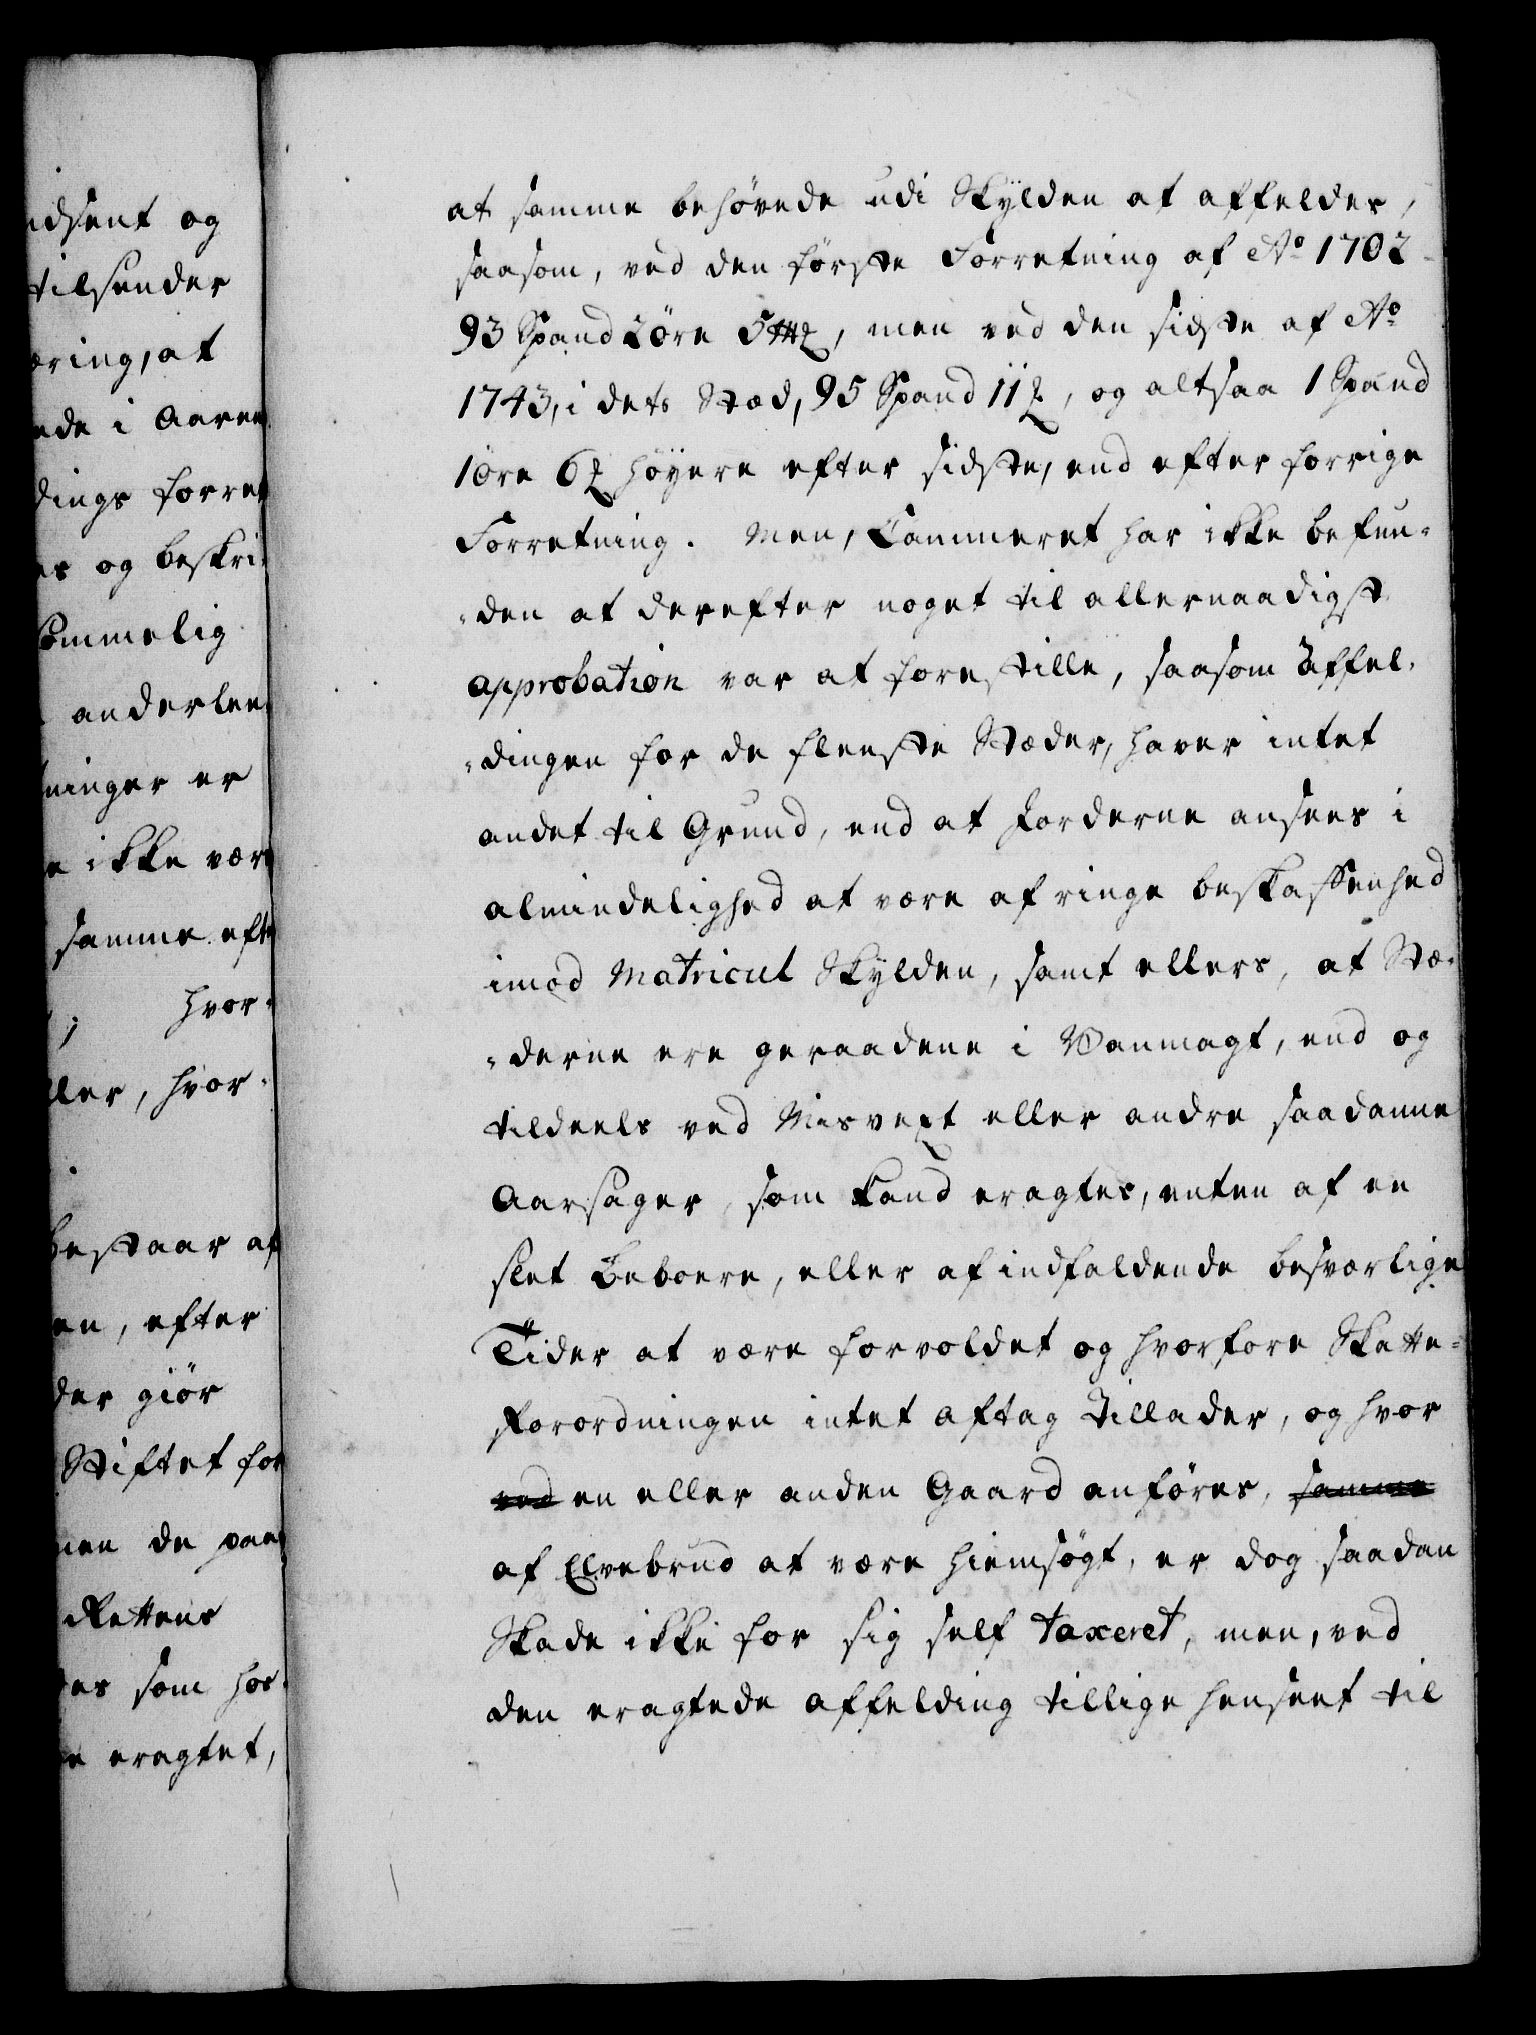 idsent og
tilsender
æring, at
ede i Aaren
dings forret
er og beskri-
Sommelig
anderlee
ninger er
e ikke vær
samme eft
; hvor-
ller, hvor-
bestaar af
en, efter
der giør
Stiftet for
men de paa
Rettens
er som hos
e eragtet,
at samme behøvede udi Skÿlden at affeldes,
saasom, ved den første Forretning af Ao 1702
93 Spand 2 øre 5 , men ved den sidste af Ao
1743, i dets Stæd, 95 Spand 11 , og altsaa 1 Spand
1 øre 6 høyere efter sidste, end efter forrige
Forretning. Men, Cammeret har ikke befun-
-den at derefter noget til allernaadigst
approbation var at forestille, saasom Affel-
-dingen for de fleeste Stæder, haver intet
andet til Grund, end at Jorderne ansees i
almindelighed at være af ringe beskaffenhed
imod Matricul Skÿlden, samt ellers, at Stæ-
-derne ere geraadene i Vanmagt, end og
tildeels ved Misvext eller andre saadanne
Aarsager, som kand eragtes, enten af en
slet Beboere, eller af indfaldende besværlige
Tider at være forvoldet og hvorfore Skatte-
Forordningen intet aftag tillader, og hvor
ved en eller anden Gaard anføres, samme
af Elvebrud at være hiemsøgt, er dog saadan
Skade ikke for sig self taxeret, men, ved
den eragtede affelding tillige henseet til